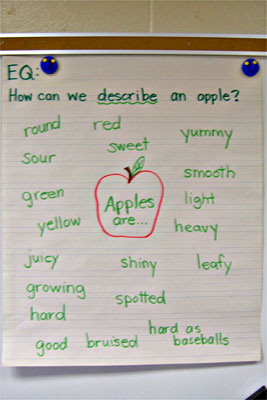 EQ:
How can we describe an apple?
round
red
sweet
yummy
sour
smooth
green
Apples
are...
light
yellow
heavy
juicy
shiny
leafy
growing
spotted
hard
hard as
baseballs
good
bruised